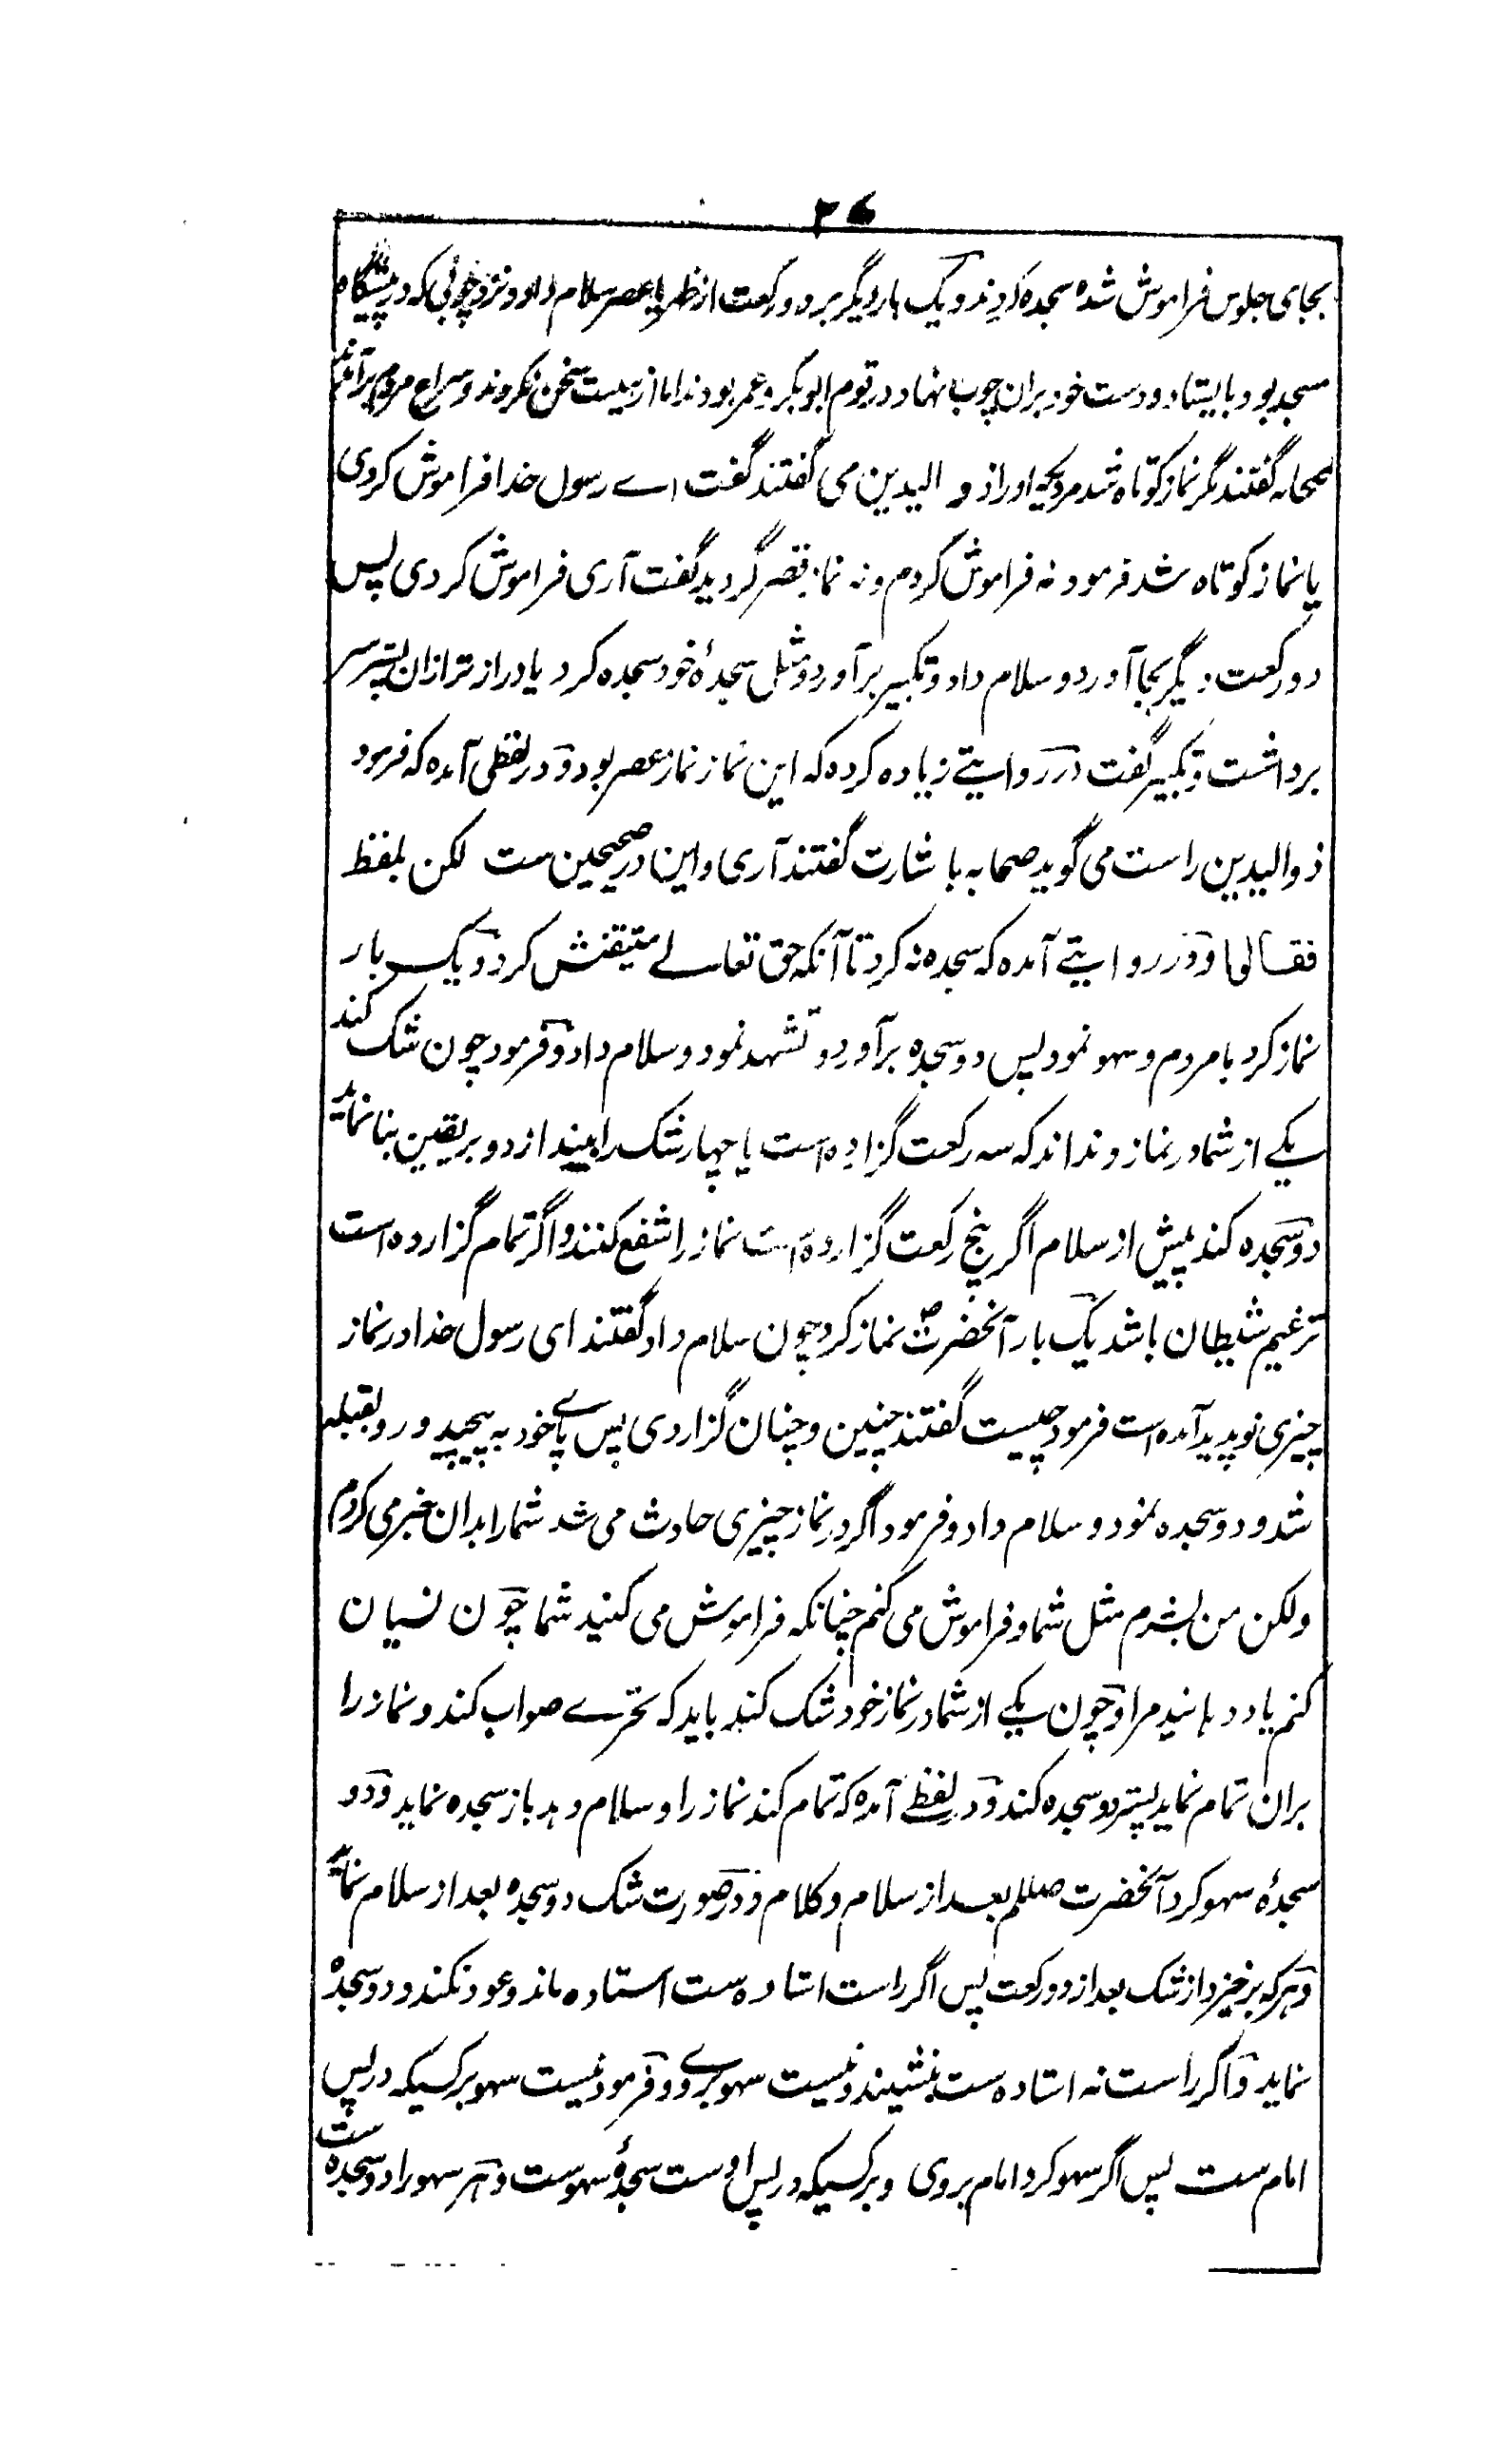 ۳۶
بجای جلوس فراموش شده سجده کردند و یک بار دیگر بر دو رکعت از ظهر یا عصر سلام داد و نزد چوبی که در پیشگاه
مسجد بود بایستاد و دست خود بران چوب نهاد در قوم ابوبکر و عمر بودند اما از هیبت سخن نکردند و سراع مردم برآمدند
صحابه گفتند مگر نماز کوتاه شد مردیکه او را ذو الیدین می گفتند گفت اے رسول خدا فراموش کردی
یا نماز کوتاه شد فرمود نه فراموش کردم و نه نماز قصر گردید گفت آری فراموش کردی پس
دو رکعت دیگر بجا آورد و سلام داد و تکبیر برآورد و مثل سجدهٔ خود سجده کرد یا دراز تر ازان پستر سر
برداشت و تکبیر گفت و در روایتے زیاده کرده که این نماز نماز عصر بود و در لفظی آمده که فرمود
ذوالیدین راست می گوید صحابه باشارت گفتند آری و این در صحیحین ست لکن بلفظ
فقالوا و در روایتے آمده که سجده نه کرد تا آنکه حق تعالے متیقنش کرد و یک بار
نماز کرد با مردم و سهو نمود پس دو سجده برآورد و تشهد نمود و سلام داد و فرمود چون شک کند
یکے از شما در نماز و نداند که سه رکعت گزارده است یا چهار شک را بیندازد و بر یقین بنا نماید
دو سجده کند پیش از سلام اگر پنج رکعت گزارده است نماز را شفع کنند و اگر تمام گزارده است
ترغیم شیطان باشد یک بار آنحضرت ص نماز کرد چون سلام داد گفتند ای رسول خدا در نماز
چیزی نو پدید آمده است فرمود چیست گفتند چنین و چنان گزاردی پس پاے خود به پیچید و رو بقبله
شد و دو سجده نمود و سلام داد و فرمود اگر در نماز چیزی حادث می شد شما را بدان خبر می کردم
ولکن من بشرم مثل شما و فراموش می کنم چنانکه فراموش می کنید شما چون نسیان
کنم یاد دهانید مرا و چون یکے از شما در نماز خود شک کند باید که تحرے صواب کند و نماز را
بران تمام نماید پستر دو سجده کند و در لفظے آمده که تمام کند نماز را و سلام دهد باز سجده نماید و دو
سجدهٔ سهو کرد آنحضرت صللم بعد از سلام و کلام و در صورت شک دو سجده بعد از سلام نماید
و هر که برخیزد از شک بعد از دو رکعت پس اگر راست استاده ست استاده ماند و عود نکند و دو سجده
نماید و اگر راست نه استاده ست بنشیند و نیست سهو بروے و فرمود نیست سهو بر کسیکه در پس
امام ست پس اگر سهو کرد امام بروی و بر کسیکه در پس اوست سجدهٔ سهوست و هر سهو را دو سجده ست